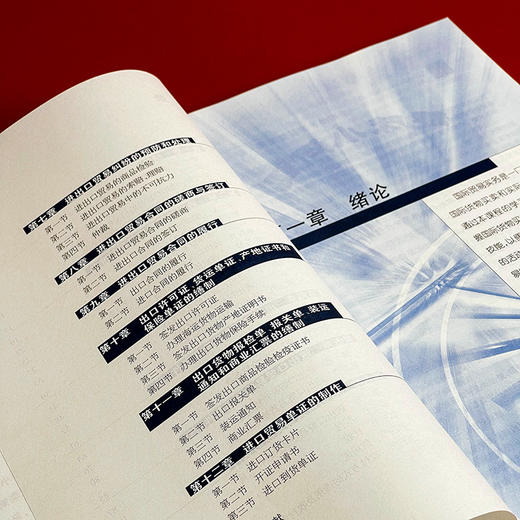 第七章 进出口贸易纠纷的预防和处理
第一节 进出口贸易的商品检验
第二节 进出口贸易的索赔、理赔
第三节 进出口贸易中的不可抗力
第四节 仲裁
第八章 进出口贸易合同的磋商与签订
第一节 进出口贸易合同的磋商
第二节 进出口合同的签订
第九章 进出口贸易合同的履行
第一节 出口合同的履行
第二节 进口合同的履行
第十章 出口许可证、货运单证、产地证书和
保险单证的缮制
第一节 签发出口许可证
第二节 办理海运货物运输
第三节 签发出口货物产地证明书
第四节 办理出口货物保险手续
第十一章 出口货物报检单、报关单、装运
通知和商业汇票的缮制
第一节 签发出口商品检验检疫证书
第二节 出口报关单
第三节 装运通知
第四节 商业汇票
第十二章 进口贸易单证的制作
第一节 进口订货卡片
第二节 开证申请书
第三节 进口到货单证
献
一章 绪论
国际贸易实务是一
国际货物买卖和实际
通过本课程的学
握国际货物买
技能，以便
的活动